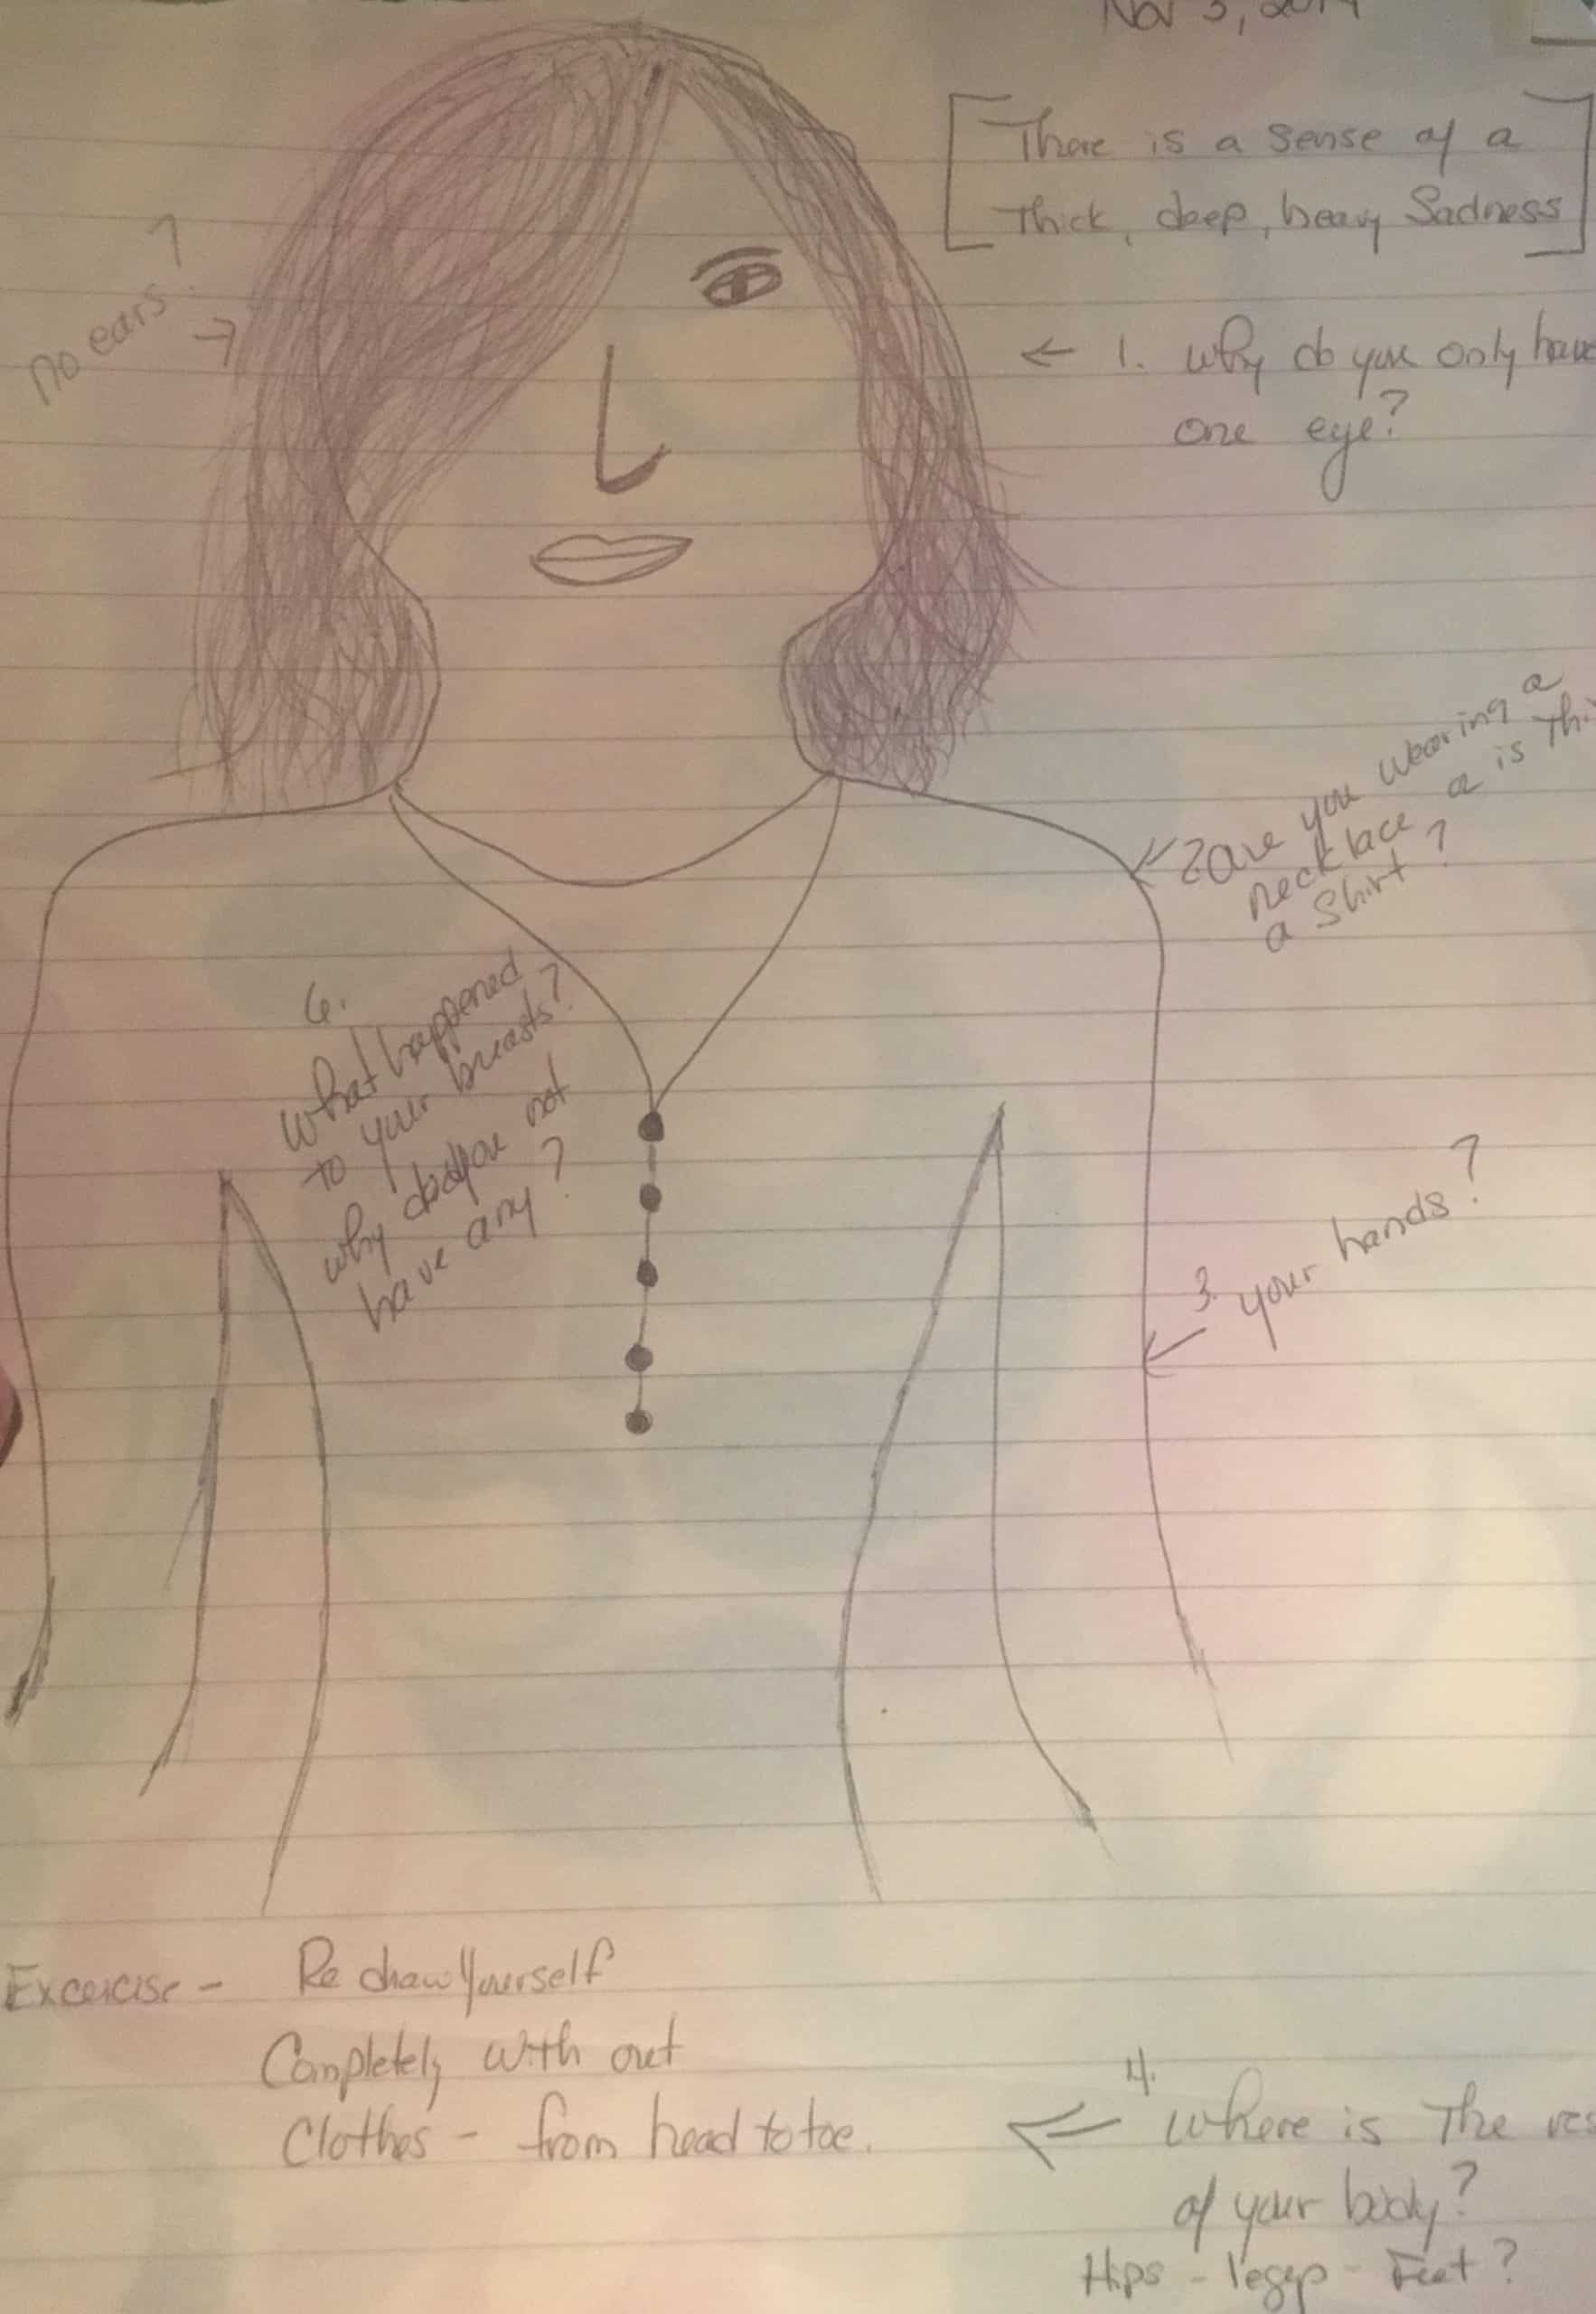 Nov 5, 2014
[There is a sense of a
Thick, deep, heavy Sadness]
no ears?
← 1. why do you only have
one eye?
← 2 are you wearing a
necklace or is Thi
a Shirt?
6.
what happened
to your breasts?
why do you not
have any?
3. your hands?
Excercise - Re draw Yourself
Completely with out
Clothes - from head to toe.
← 4. Where is The res
of your body?
Hips - legs - Feet?